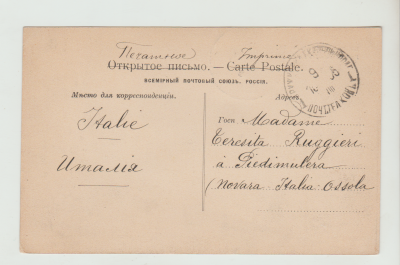 Печатное Imprimé
Открытое письмо. — Carte Postale.
ВСЕМІРНЫЙ ПОЧТОВЫЙ СОЮЗЪ. РОССІЯ.
Мѣсто для корреспонденціи.
Адресъ
Italie
Италія
Госп Madame
Teresita Ruggieri
à Piedimulera
(Novara Italia-Ossola